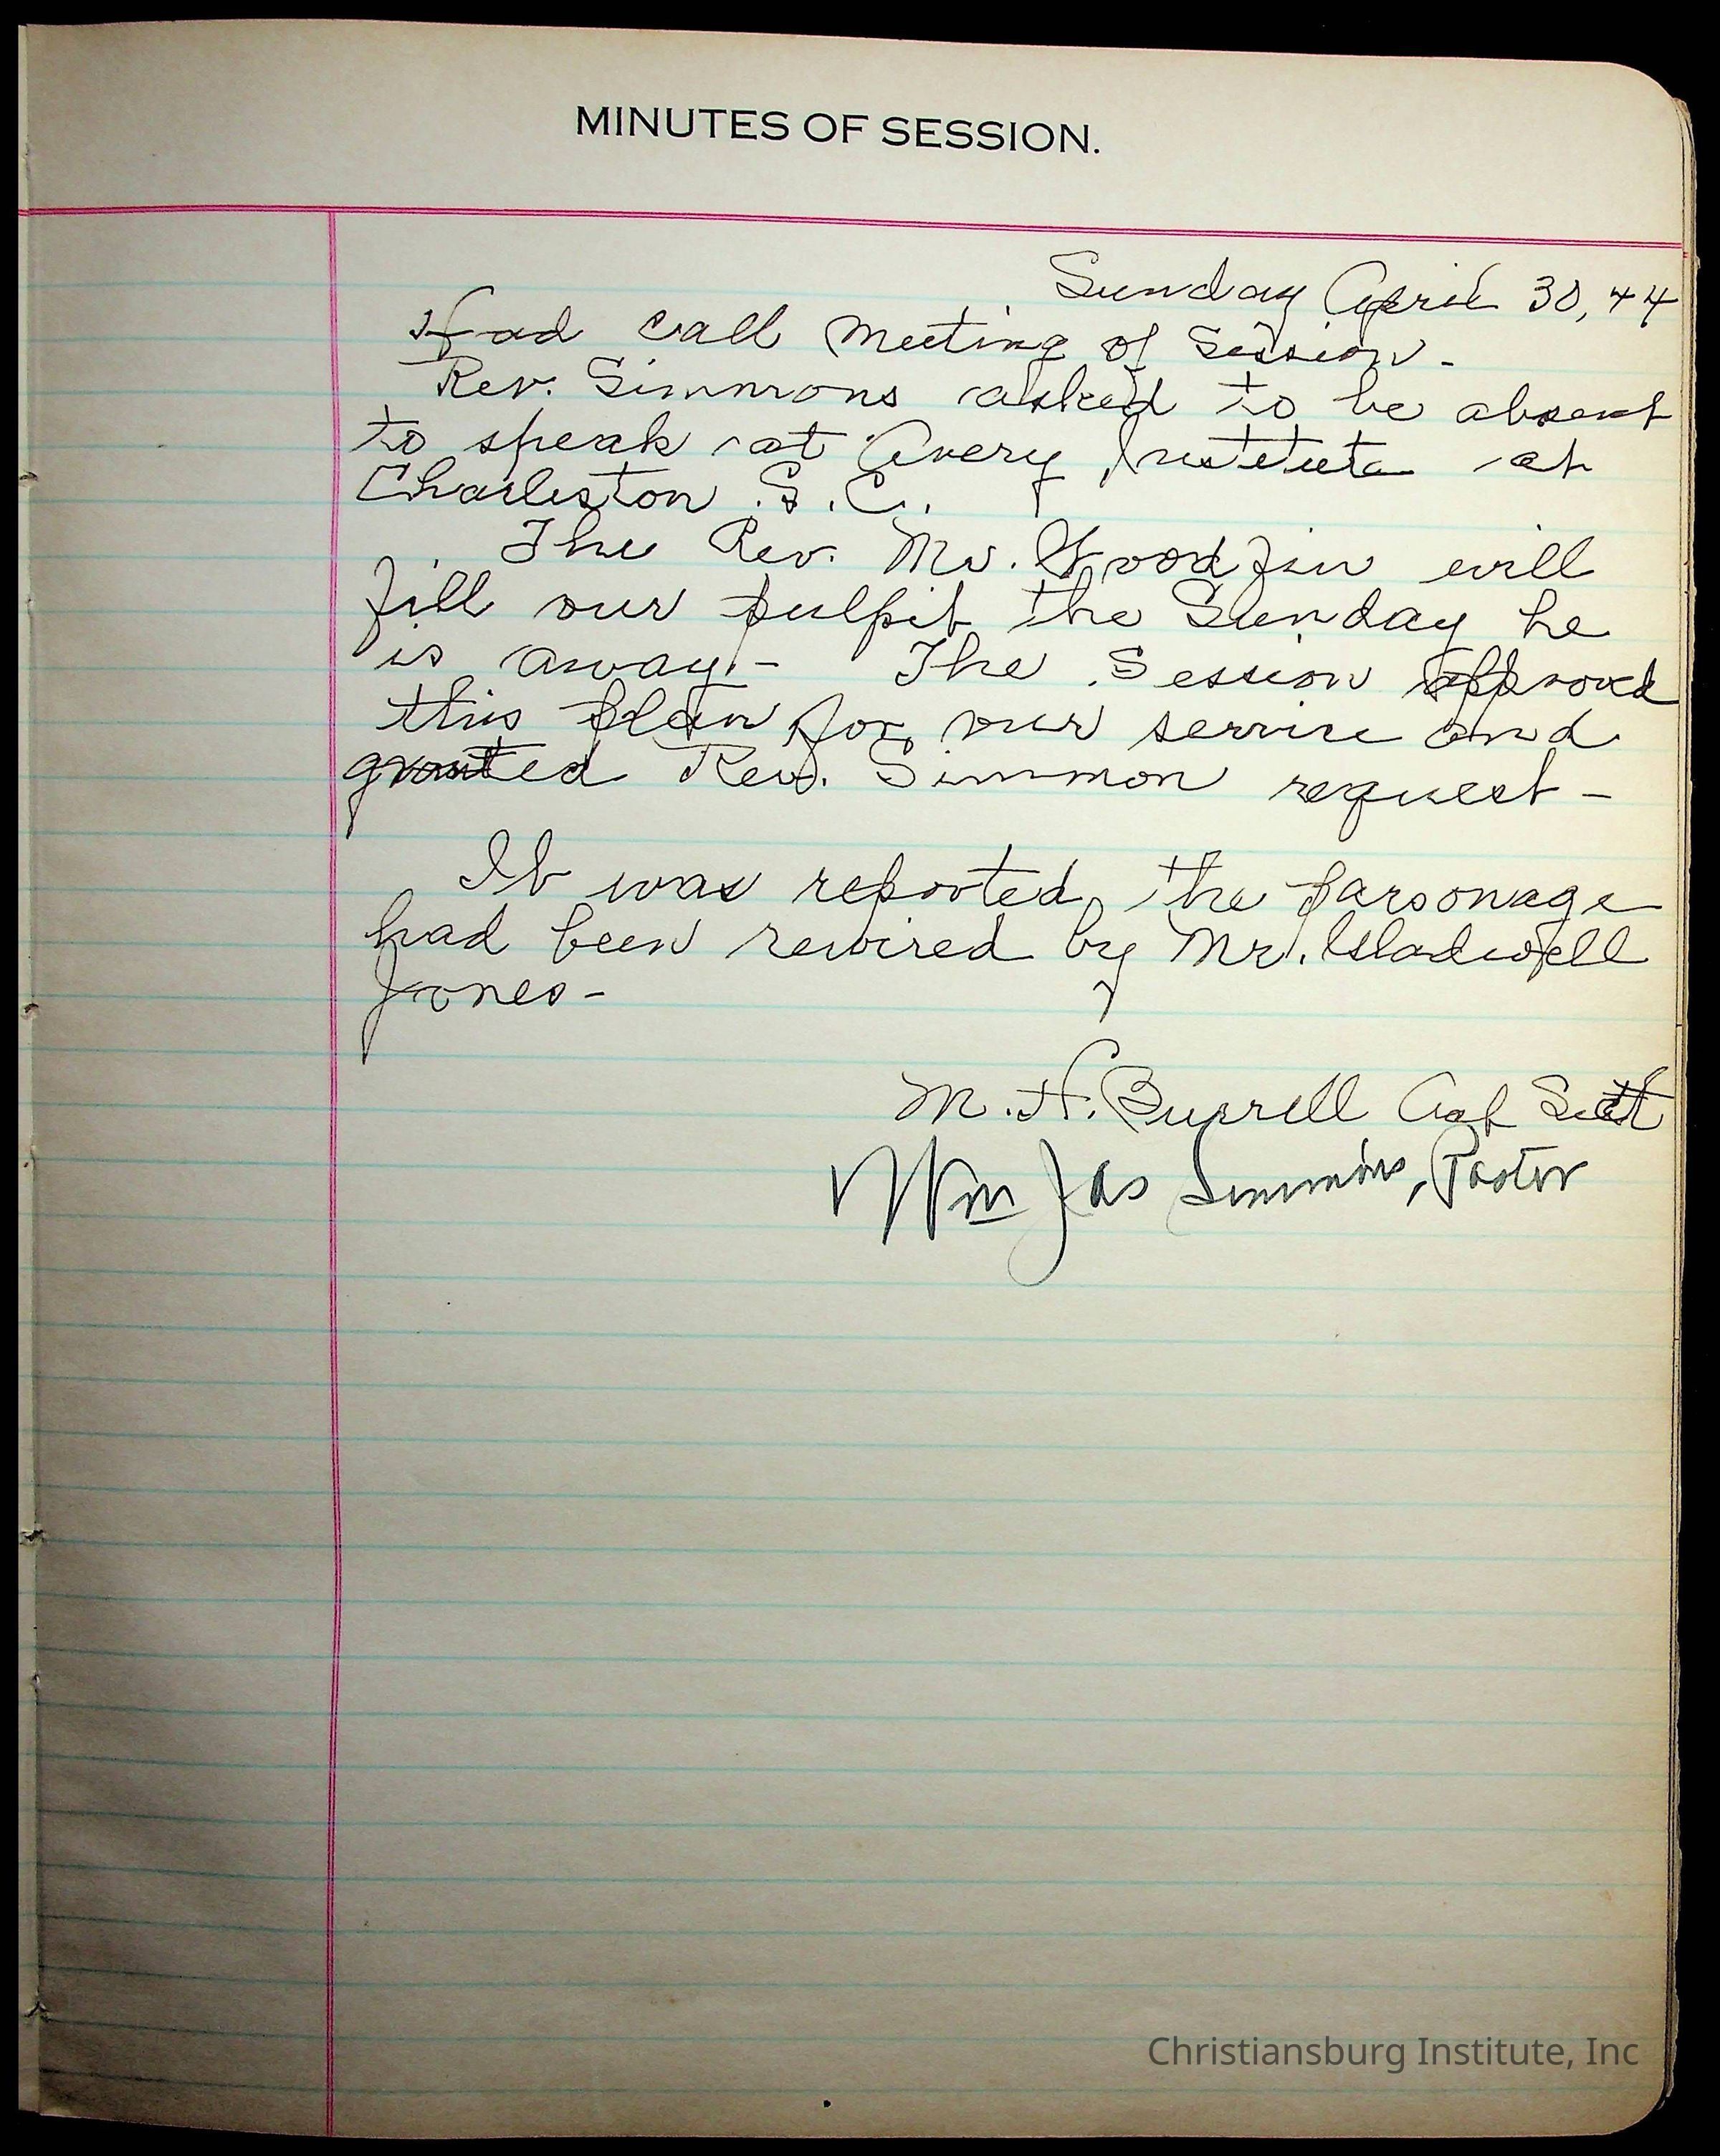 MINUTES OF SESSION.
Sunday April 30, 44
Had call meeting of Session -
Rev. Simmons asked to be absent
to speak at Avery Institute at
Charleston S.C.
The Rev. Mr. Goodfin will
fill our pulpit the Sunday he
is away. - The Session approved
this plan for our service and
granted Rev. Simmon request -
It was reported the parsonage
had been rewired by Mr. Gladwell
Jones -
M. H. Burrell Act Sect
Wm Jas Simmons, Pastor
Christiansburg Institute, Inc